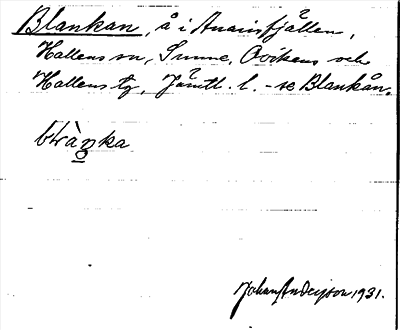 Blankan, å i Anarisfjällen,
Hallens sn, Sunne, Ovikens och
Hallens tg, Jämtl. l. - se Blankån.
Johan Anderjson 1931.